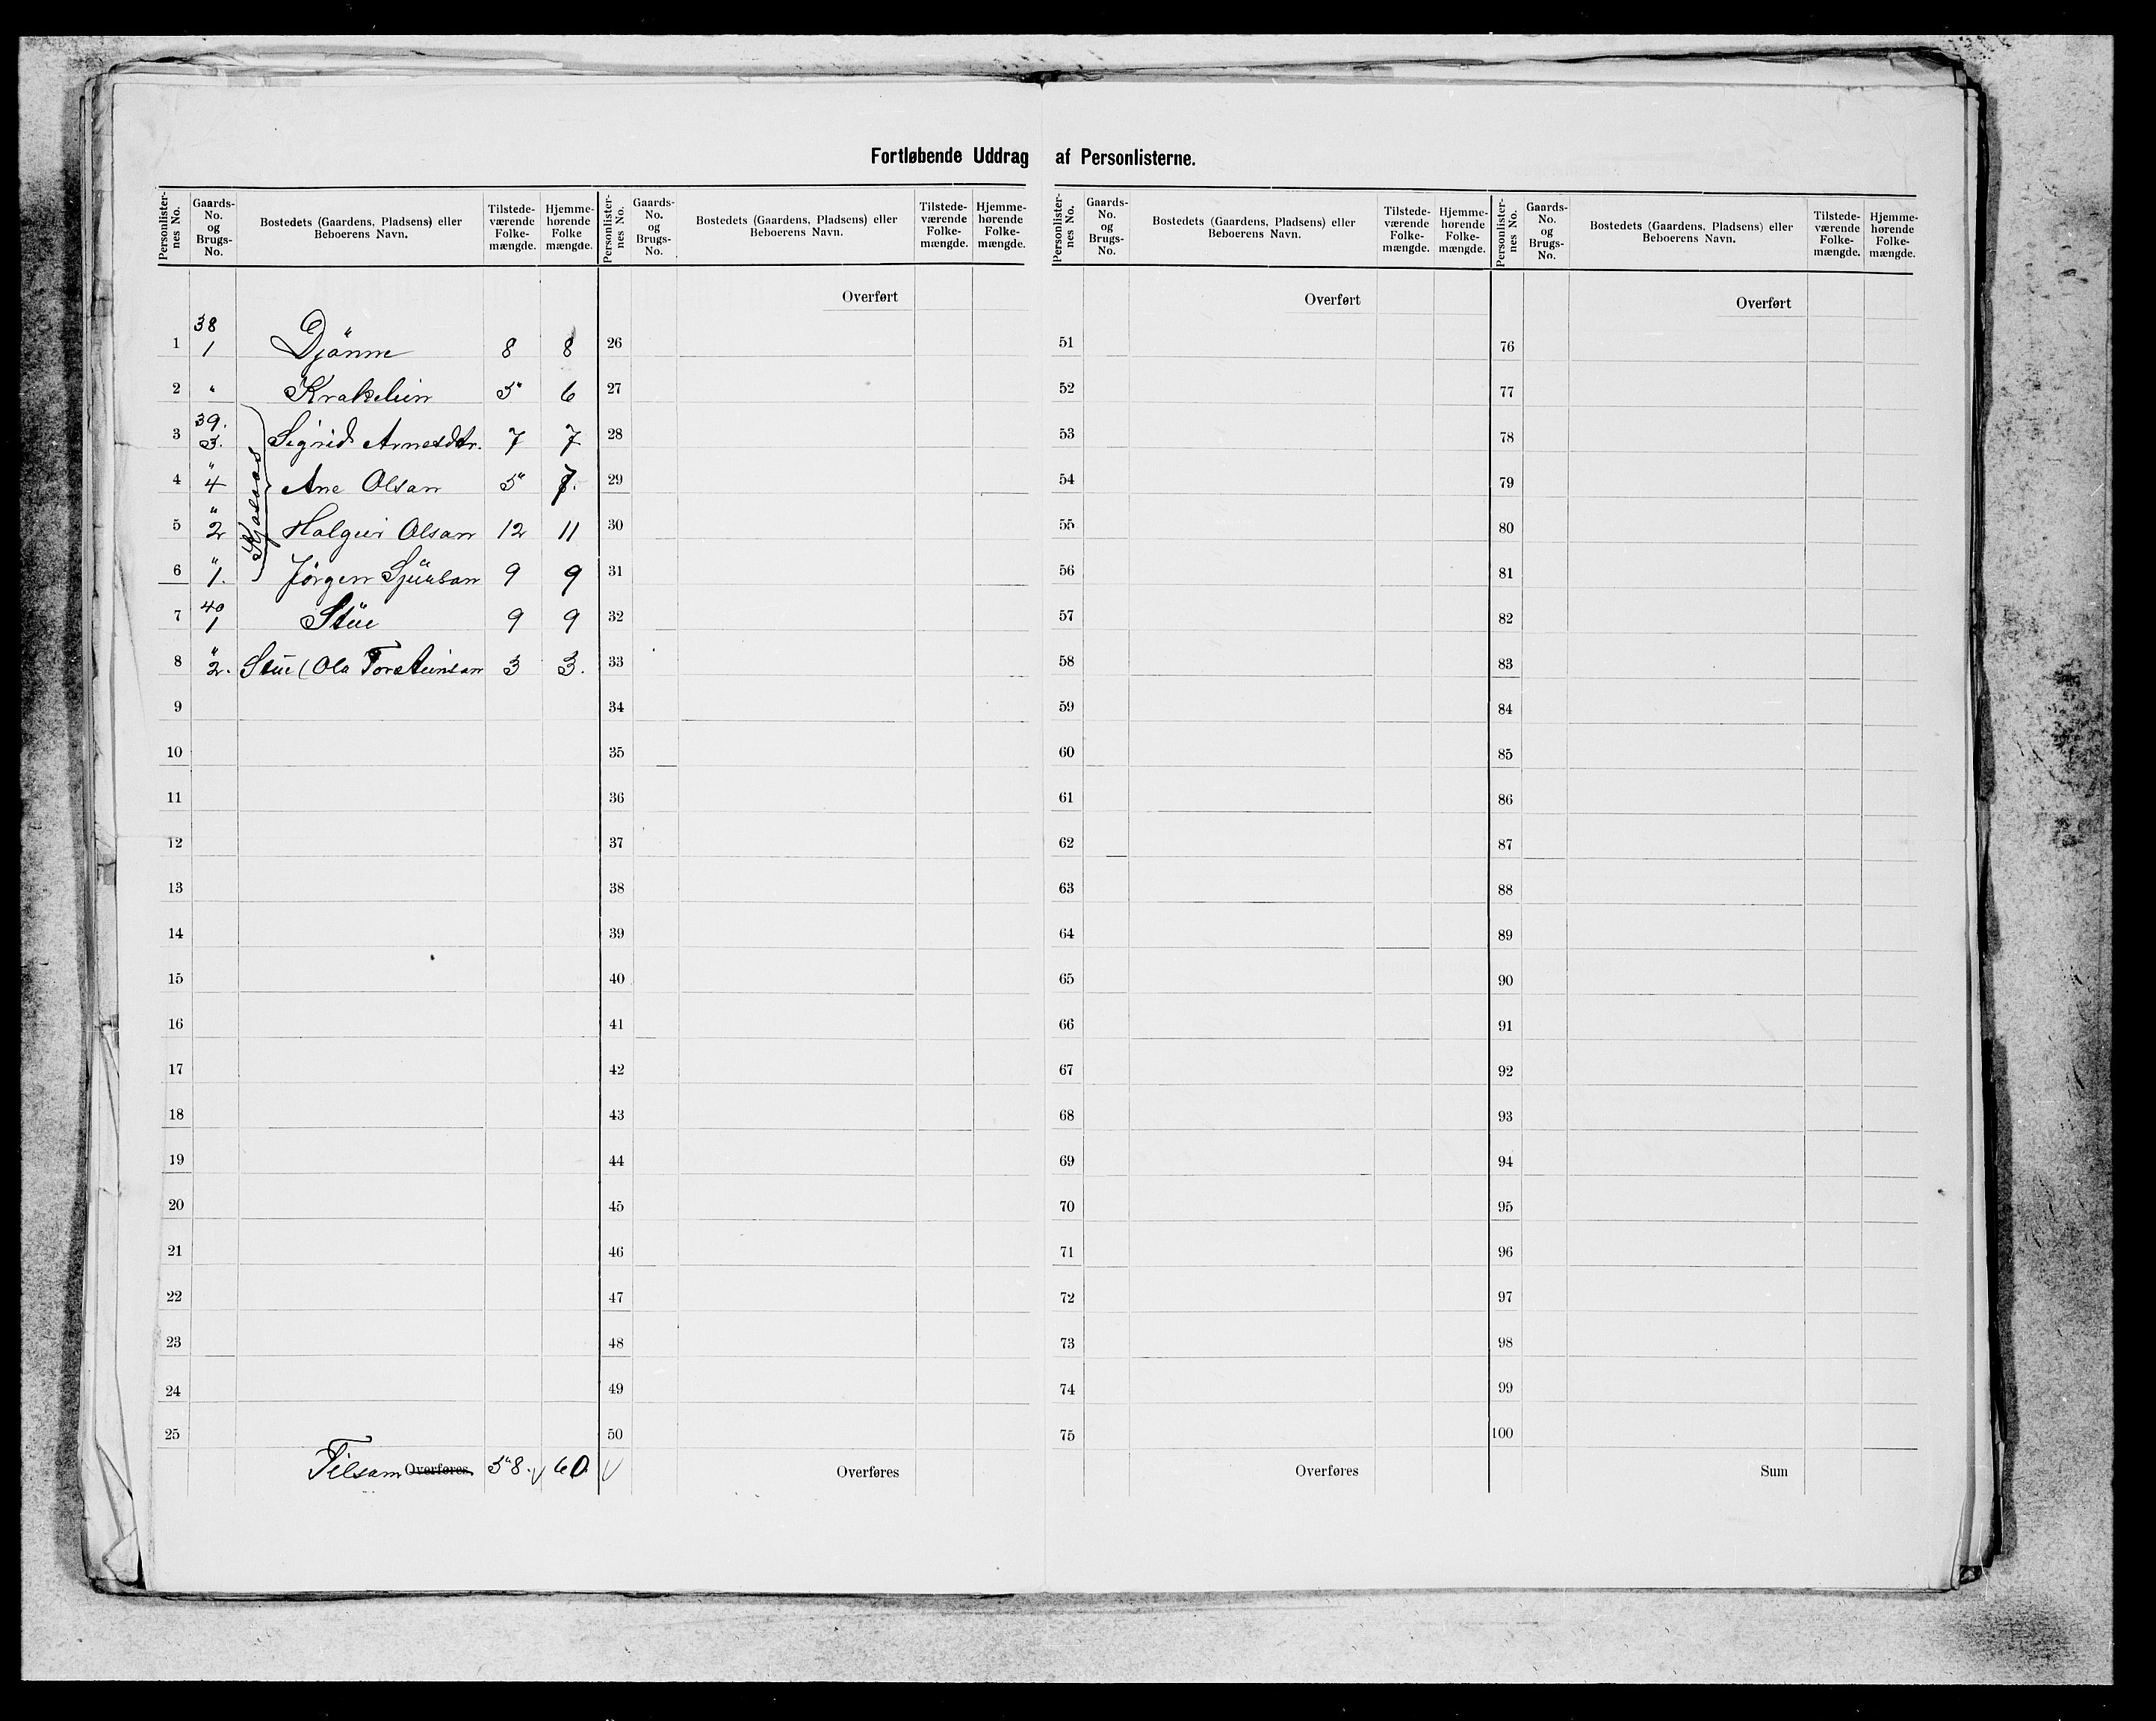 Fortløbende Uddrag af Personlisterne.
Personlisternes No. | Gaards-No. og Brugs-No. | Bostedets (Gaardens, Pladsens) eller Beboerens Navn. | Tilstedeværende Folkemængde. | Hjemmehørende Folkemængde.
Personlisternes No. | Gaards-No. og Brugs-No. | Bostedets (Gaardens, Pladsens) eller Beboerens Navn. | Tilstedeværende Folkemængde. | Hjemmehørende Folkemængde.
Personlisternes No. | Gaards-No. og Brugs-No. | Bostedets (Gaardens, Pladsens) eller Beboerens Navn. | Tilstedeværende Folkemængde. | Hjemmehørende Folkemængde.
Personlisternes No. | Gaards-No. og Brugs-No. | Bostedets (Gaardens, Pladsens) eller Beboerens Navn. | Tilstedeværende Folkemængde. | Hjemmehørende Folkemængde.
1 38/1 Djönne 8 8
2 " Krakelein 5 6
3 39./3. Sigrid Arnesdtr. 7 7
4 "/4 Ane Olsan 5 7.
5 "/2 Halgeir Olsan 12 11
6 "/1. Jörgen Sjursan 9 9
7 40/1 Stüe 9 9
8 "/2. Stüe (Ola Torsteinsan 3 3.
9
10
11
12
13
14
15
16
17
18
19
20
21
22
23
24
25
Tilsam Overføres 58. 60
Overført
26
27
28
29
30
31
32
33
34
35
36
37
38
39
40
41
42
43
44
45
46
47
48
49
50
Overføres
Overført
51
52
53
54
55
56
57
58
59
60
61
62
63
64
65
66
67
68
69
70
71
72
73
74
75
Overføres
Overført
76
77
78
79
80
81
82
83
84
85
86
87
88
89
90
91
92
93
94
95
96
97
98
99
100
Sum